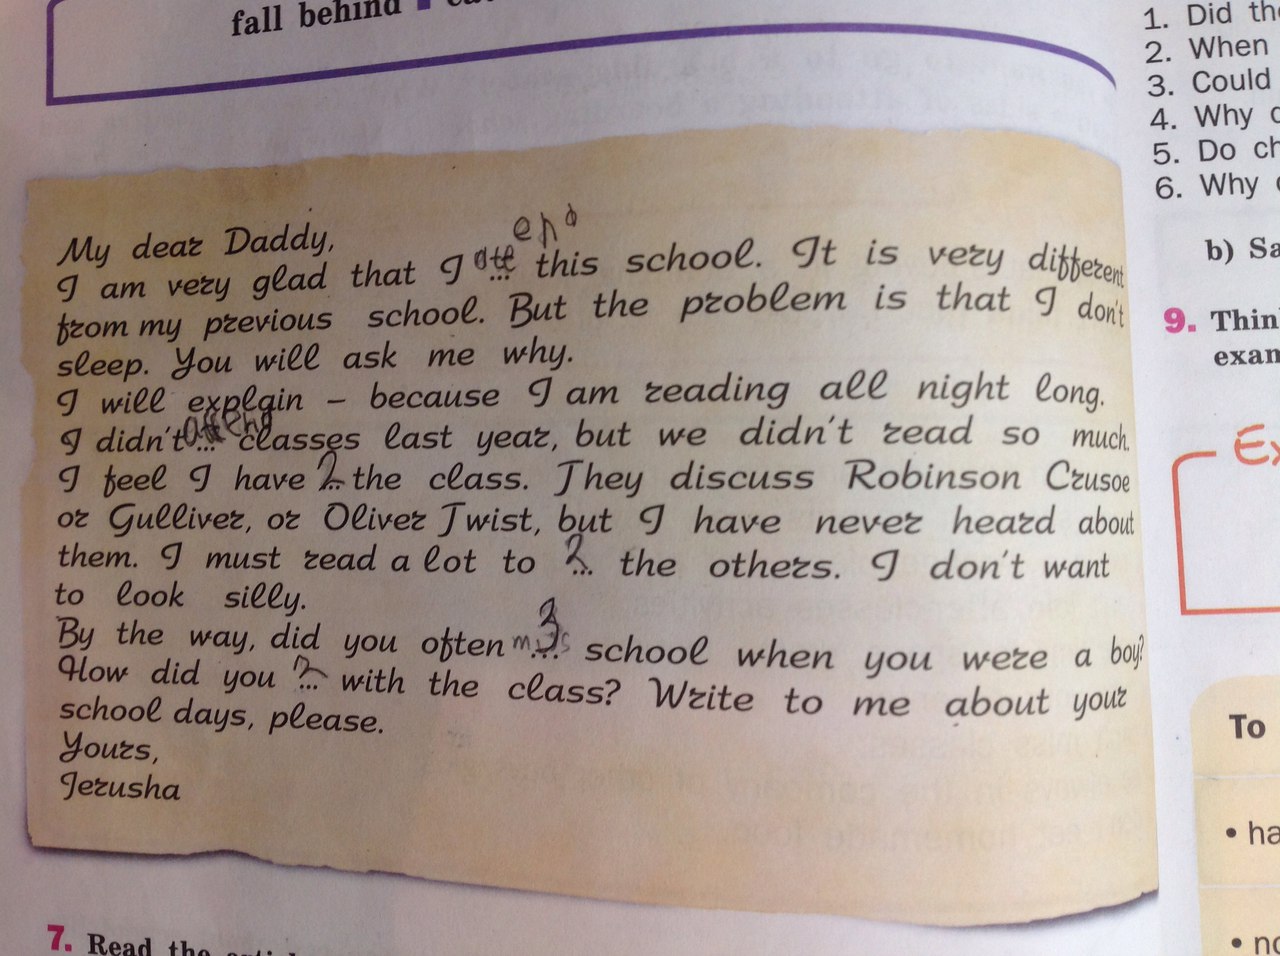 fall behind
1. Did the
2. When
3. Could
4. Why
5. Do ch
6. Why
b) Sa
9. Think
exam
Ex
To
• ha
• no
end
My dear Daddy,
I am very glad that I att ... this school. It is very different
from my previous school. But the problem is that I don't
sleep. You will ask me why.
I will explain – because I am reading all night long.
attend
I didn't ... classes last year, but we didn't read so much.
I feel I have 2 ... the class. They discuss Robinson Crusoe
or Gulliver, or Oliver Twist, but I have never heard about
them. I must read a lot to 2 ... the others. I don't want
to look silly.
3
By the way, did you often miss ... school when you were a boy?
How did you 2 ... with the class? Write to me about your
school days, please.
Yours,
Jerusha
7. Read the